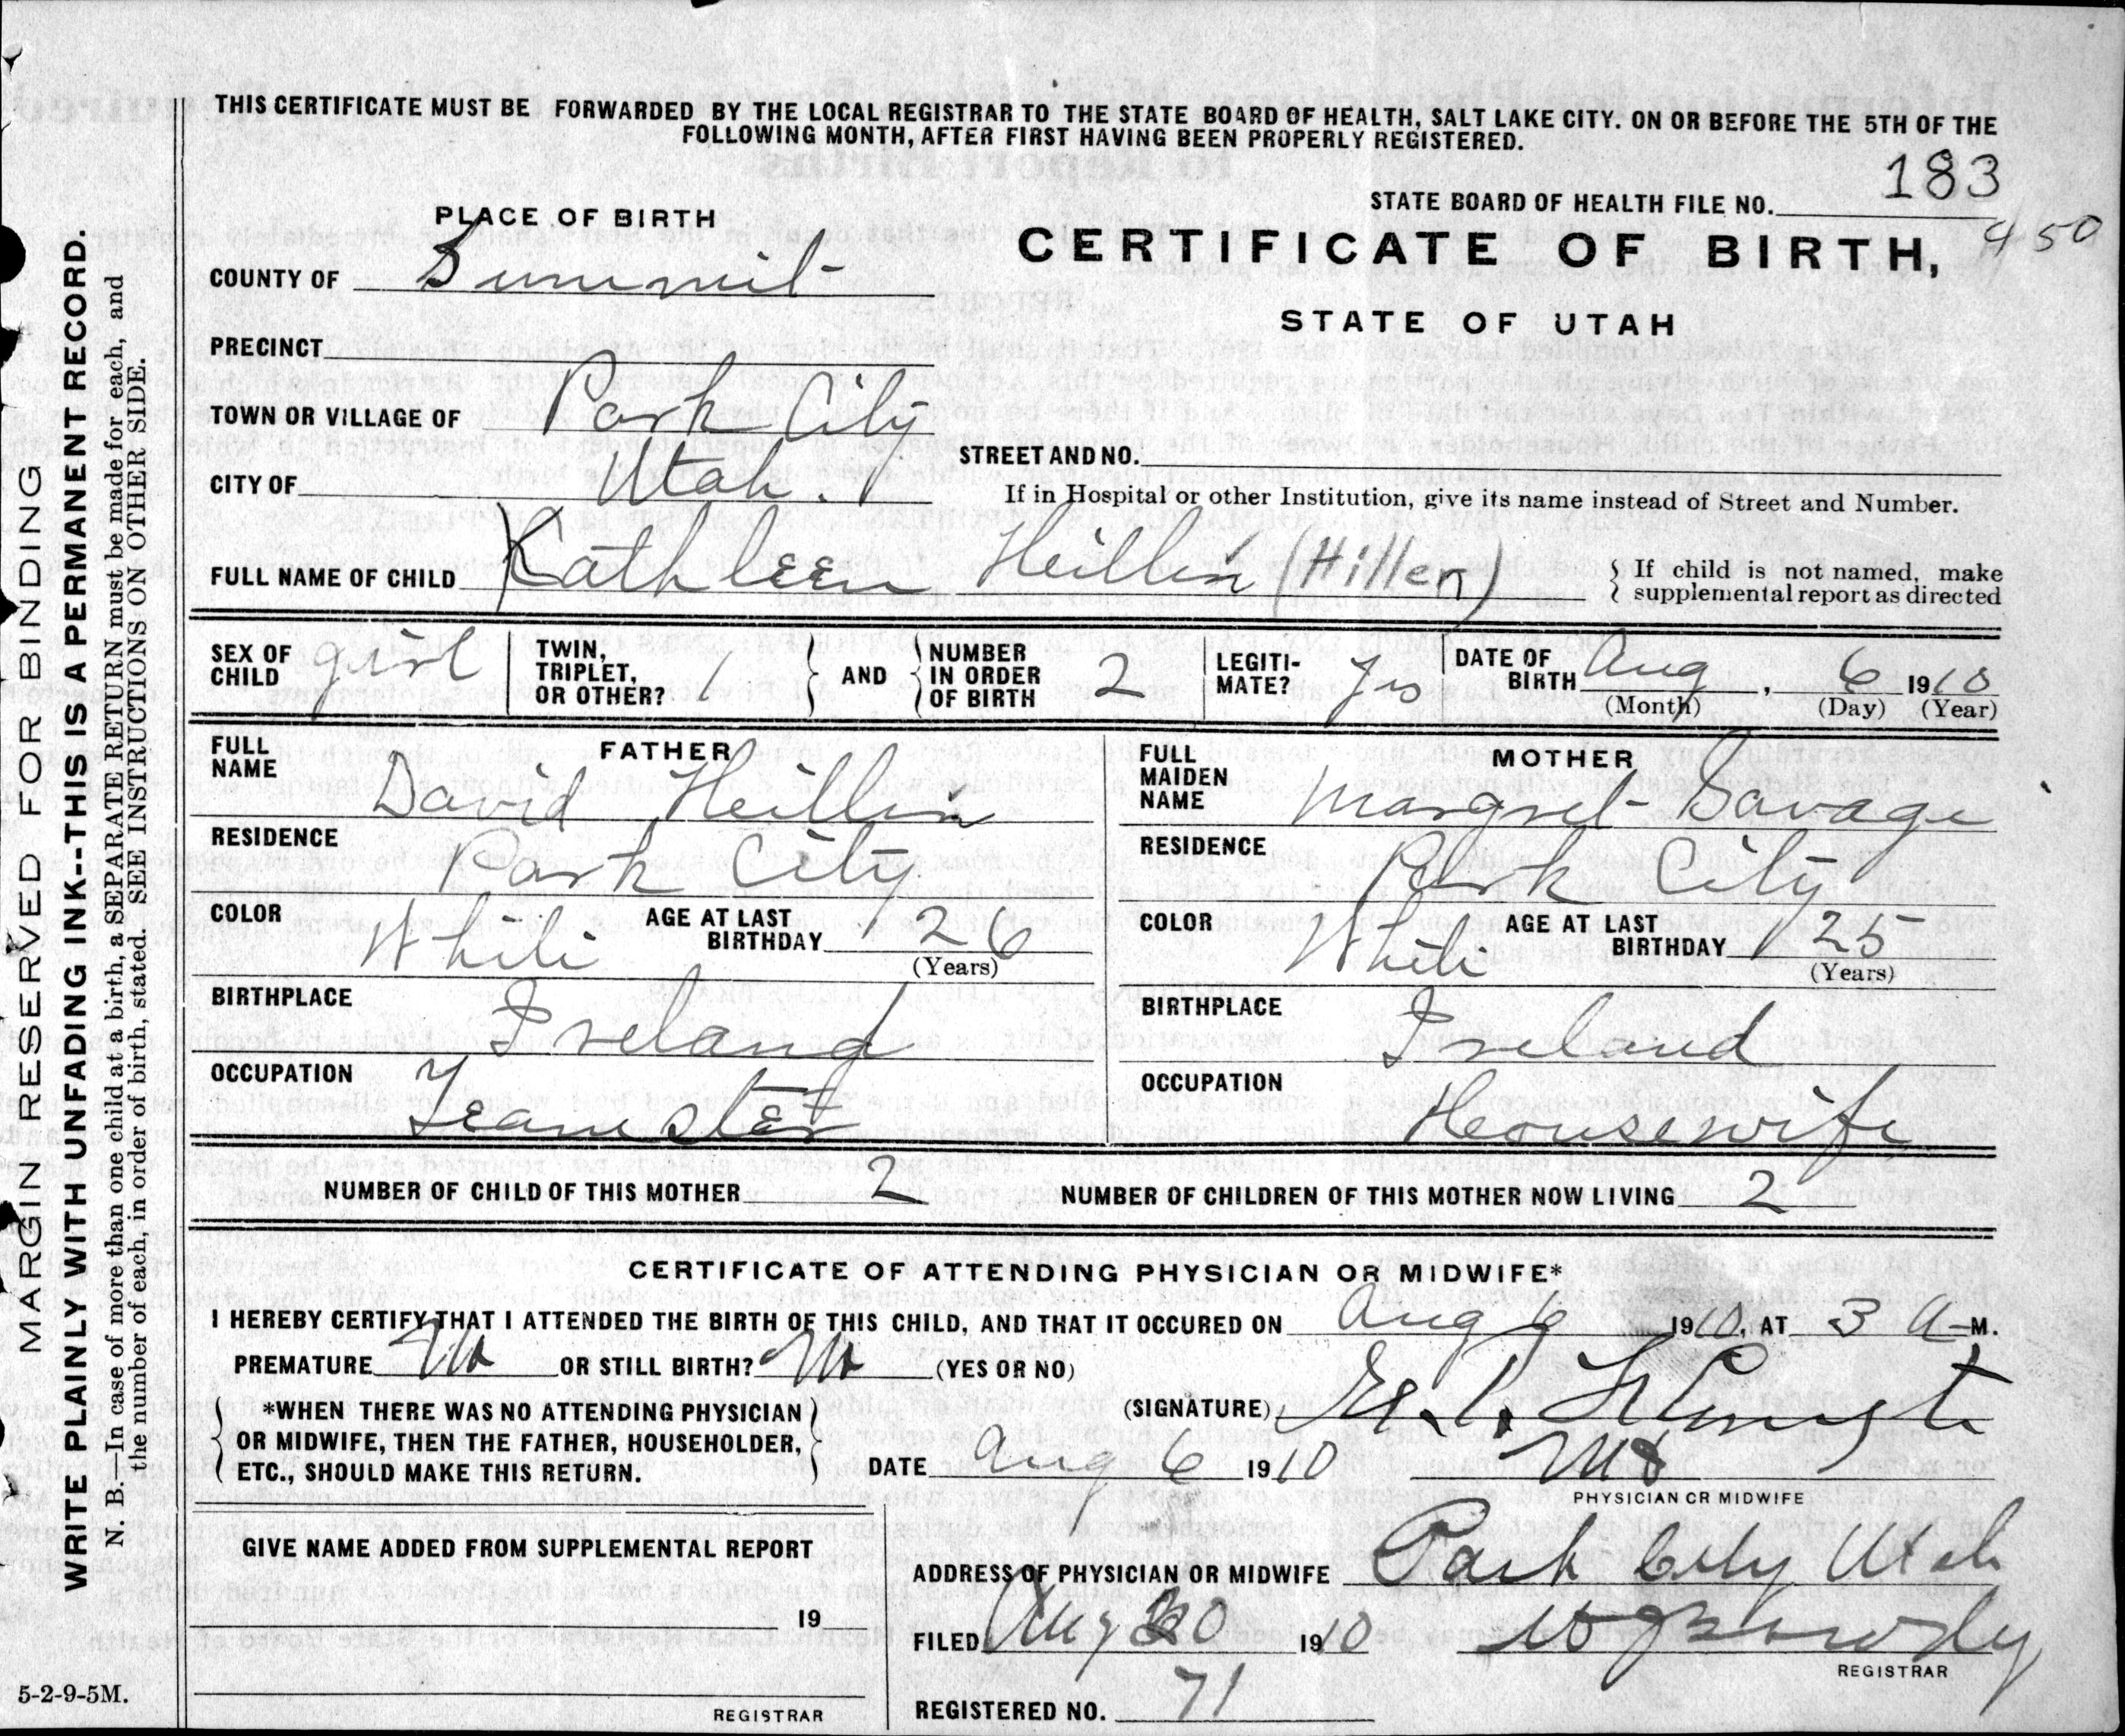 THIS CERTIFICATE MUST BE FORWARDED BY THE LOCAL REGISTRAR TO THE STATE BOARD OF HEALTH, SALT LAKE CITY. ON OR BEFORE THE 5TH OF THE
FOLLOWING MONTH, AFTER FIRST HAVING BEEN PROPERLY REGISTERED.
STATE BOARD OF HEALTH FILE NO. 183
450
PLACE OF BIRTH
CERTIFICATE OF BIRTH,
STATE OF UTAH
COUNTY OF Summit
PRECINCT
TOWN OR VILLAGE OF Park City
CITY OF Utah.
STREET AND NO.
If in Hospital or other Institution, give its name instead of Street and Number.
FULL NAME OF CHILD Kathleen Heillin (Hillen)
{ If child is not named, make
supplemental report as directed
SEX OF CHILD girl
TWIN, TRIPLET, OR OTHER? 1
AND
NUMBER IN ORDER OF BIRTH 2
LEGITI-MATE? Yes
DATE OF BIRTH Aug, 6 1910
(Month) (Day) (Year)
FATHER
FULL NAME David Heillin
RESIDENCE Park City
COLOR White AGE AT LAST BIRTHDAY 26
(Years)
BIRTHPLACE Ireland
OCCUPATION Teamster
MOTHER
FULL MAIDEN NAME Margret Savage
RESIDENCE Park City
COLOR White AGE AT LAST BIRTHDAY 25
(Years)
BIRTHPLACE Ireland
OCCUPATION Housewife
NUMBER OF CHILD OF THIS MOTHER 2 NUMBER OF CHILDREN OF THIS MOTHER NOW LIVING 2
CERTIFICATE OF ATTENDING PHYSICIAN OR MIDWIFE*
I HEREBY CERTIFY THAT I ATTENDED THE BIRTH OF THIS CHILD, AND THAT IT OCCURED ON Aug 6 1910, AT 3 A M.
PREMATURE No OR STILL BIRTH? No (YES OR NO)
*WHEN THERE WAS NO ATTENDING PHYSICIAN
OR MIDWIFE, THEN THE FATHER, HOUSEHOLDER,
ETC., SHOULD MAKE THIS RETURN.
(SIGNATURE)
DATE Aug 6 1910 MD
PHYSICIAN OR MIDWIFE
GIVE NAME ADDED FROM SUPPLEMENTAL REPORT
19
REGISTRAR
ADDRESS OF PHYSICIAN OR MIDWIFE Park City Utah
FILED Aug 1910
REGISTRAR
REGISTERED NO. 71
5-2-9-5M.
MARGIN RESERVED FOR BINDING
WRITE PLAINLY WITH UNFADING INK--THIS IS A PERMANENT RECORD.
N. B.—In case of more than one child at a birth, a SEPARATE RETURN must be made for each, and
the number of each, in order of birth, stated. SEE INSTRUCTIONS ON OTHER SIDE.